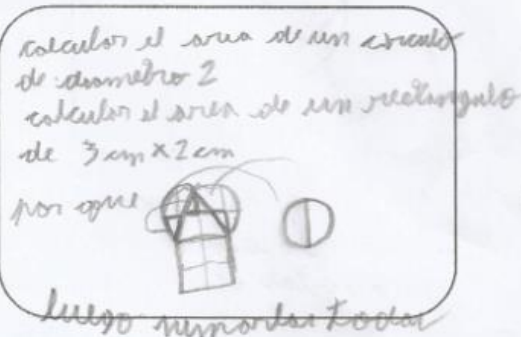 calcular el area de un circulo
de diametro 2
calcular el area de un rectangulo
de 3 cm x 2 cm
por que
luego sumarlas todas